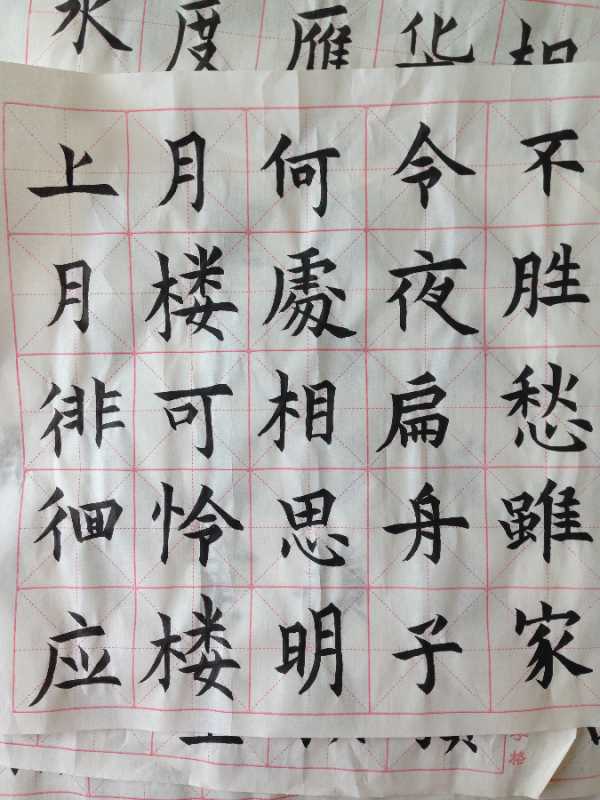 华
雁
度
水
不胜愁雖家
令夜扁舟子
何處相思明
月楼可怜楼
上月徘徊应